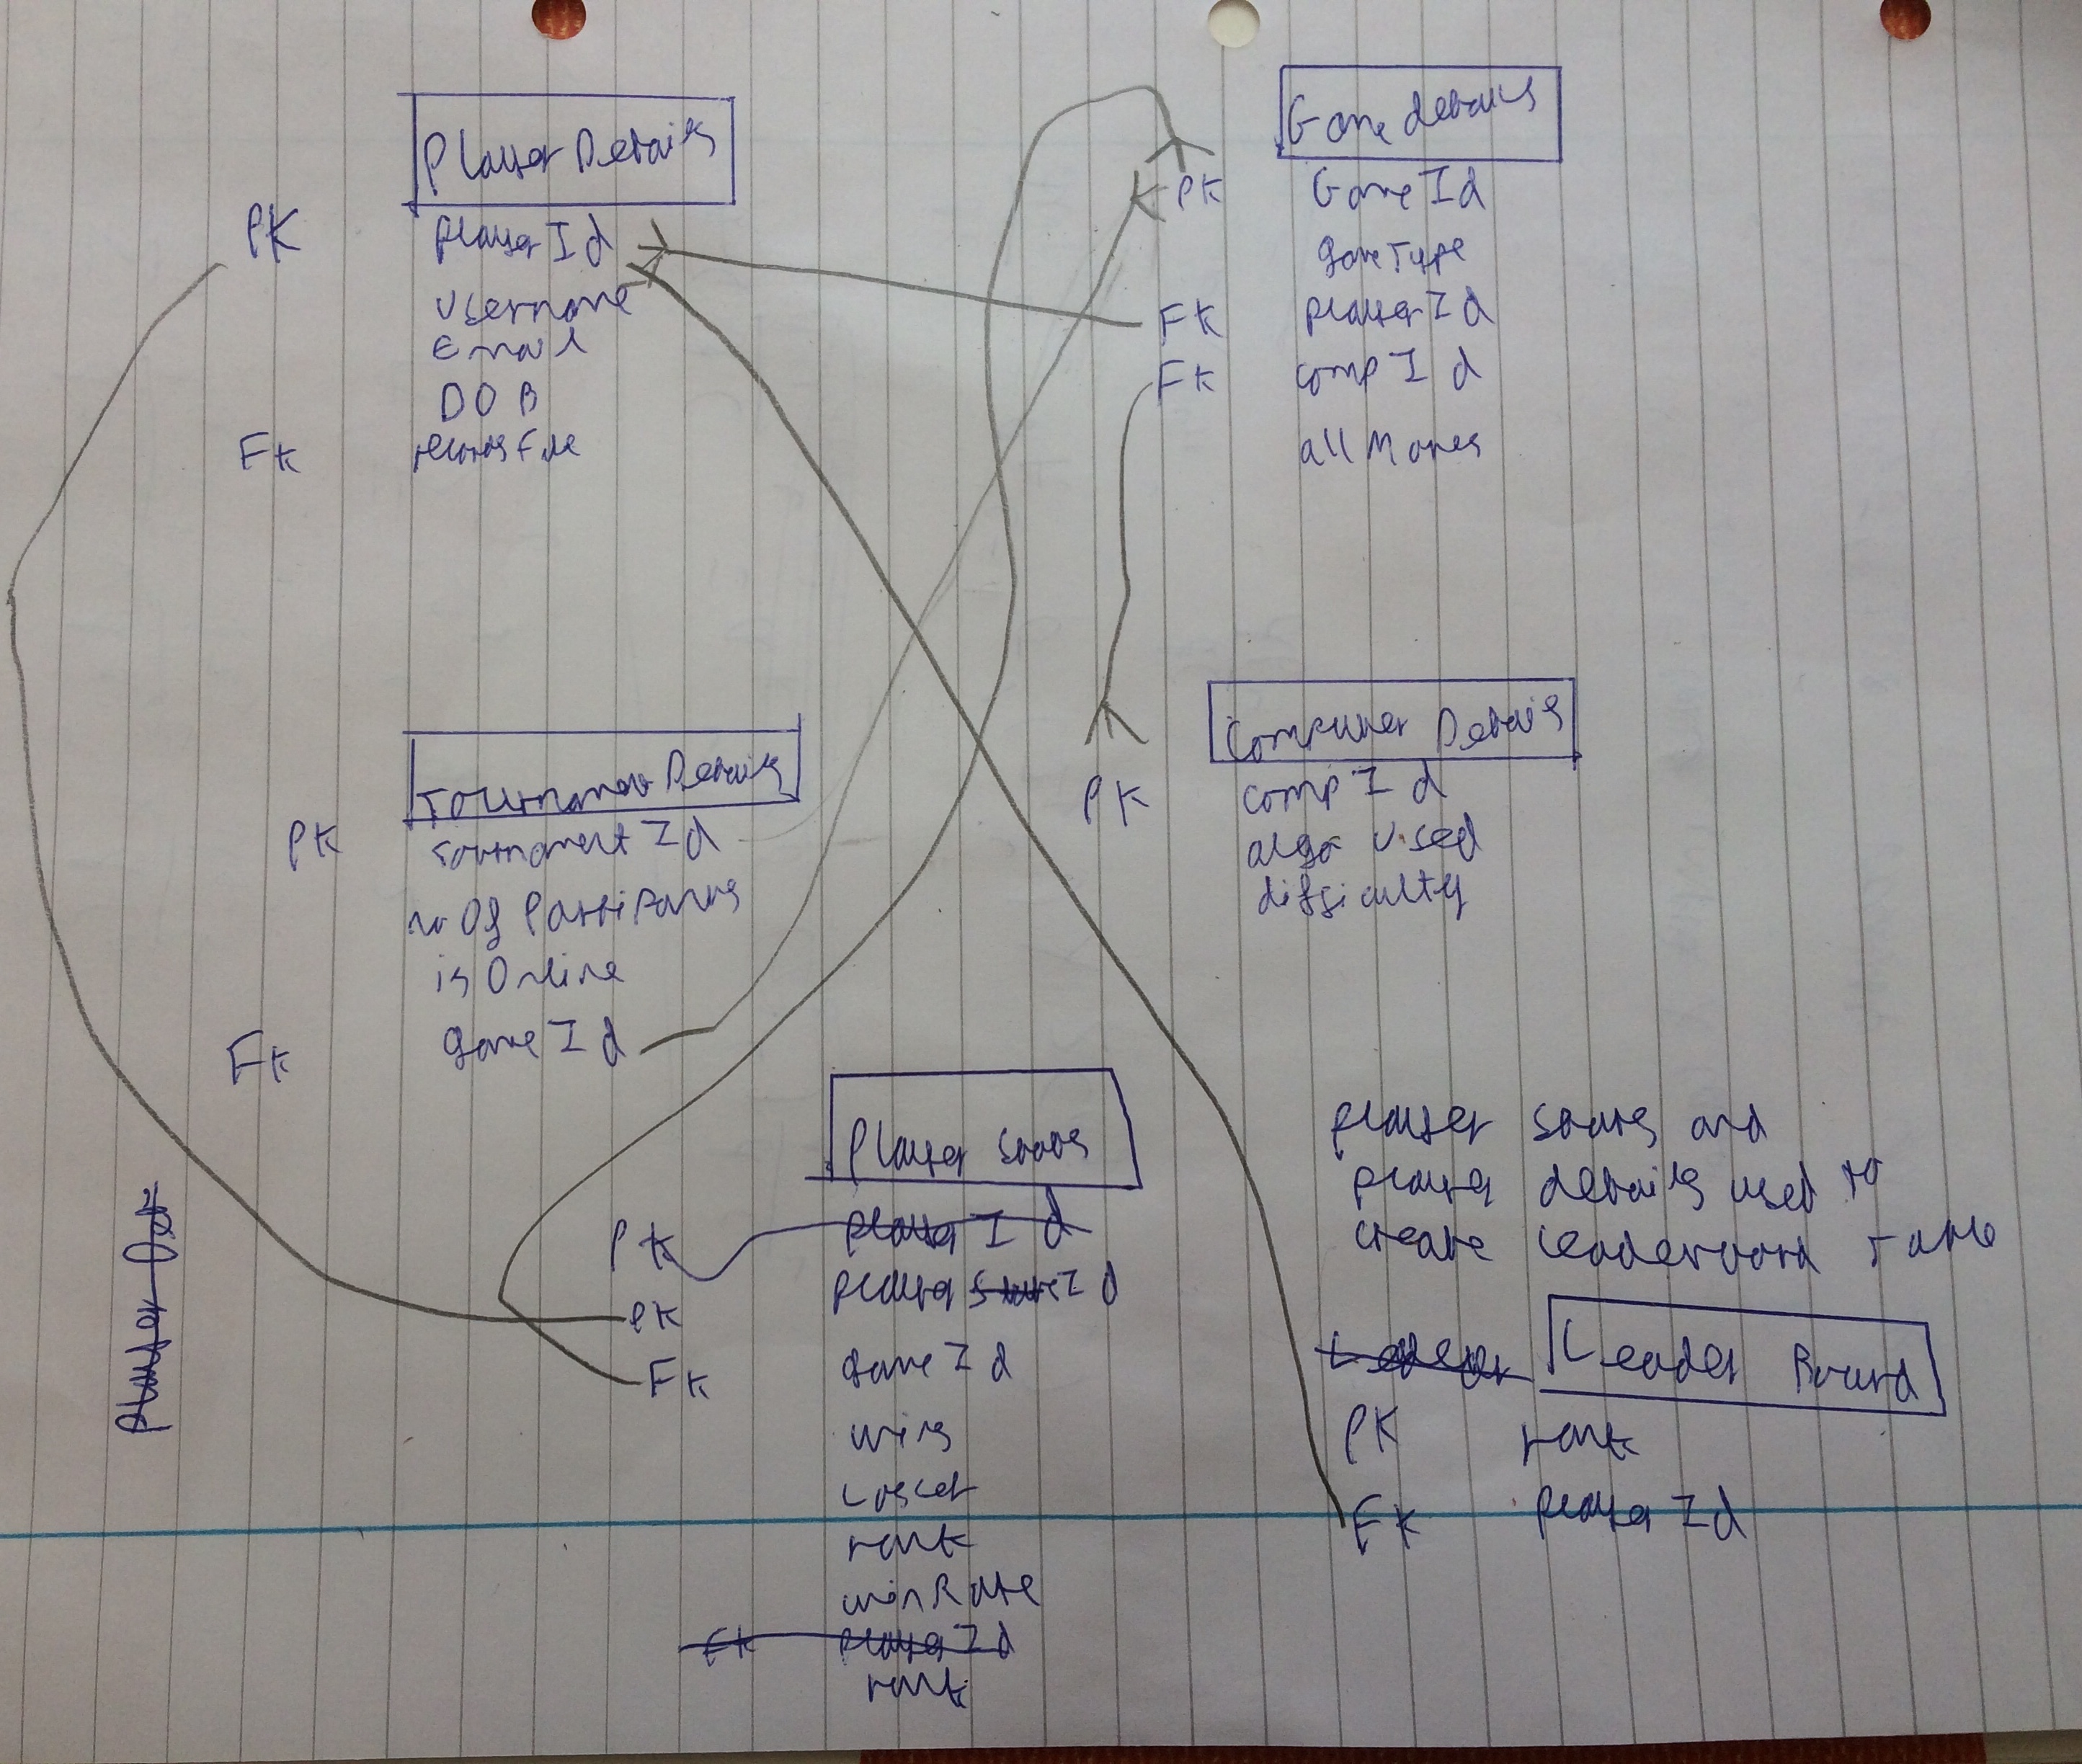 Player Details
PK playerId
username
Email
DOB
FK recordsFile
Game details
PK GameId
gameType
FK playerId
FK compId
allMoves
Tournament Details
PK tournamentId
noOfParticipants
isOnline
FK gameId
Computer Details
PK compId
algo used
difficulty
Player Stats
PK playerId
PK player StatsId
FK gameId
wins
Losses
rank
winRate
FK playerId
rank
player stats and
player details used to
create leaderboard table
Leader Board
PK rank
FK playerId